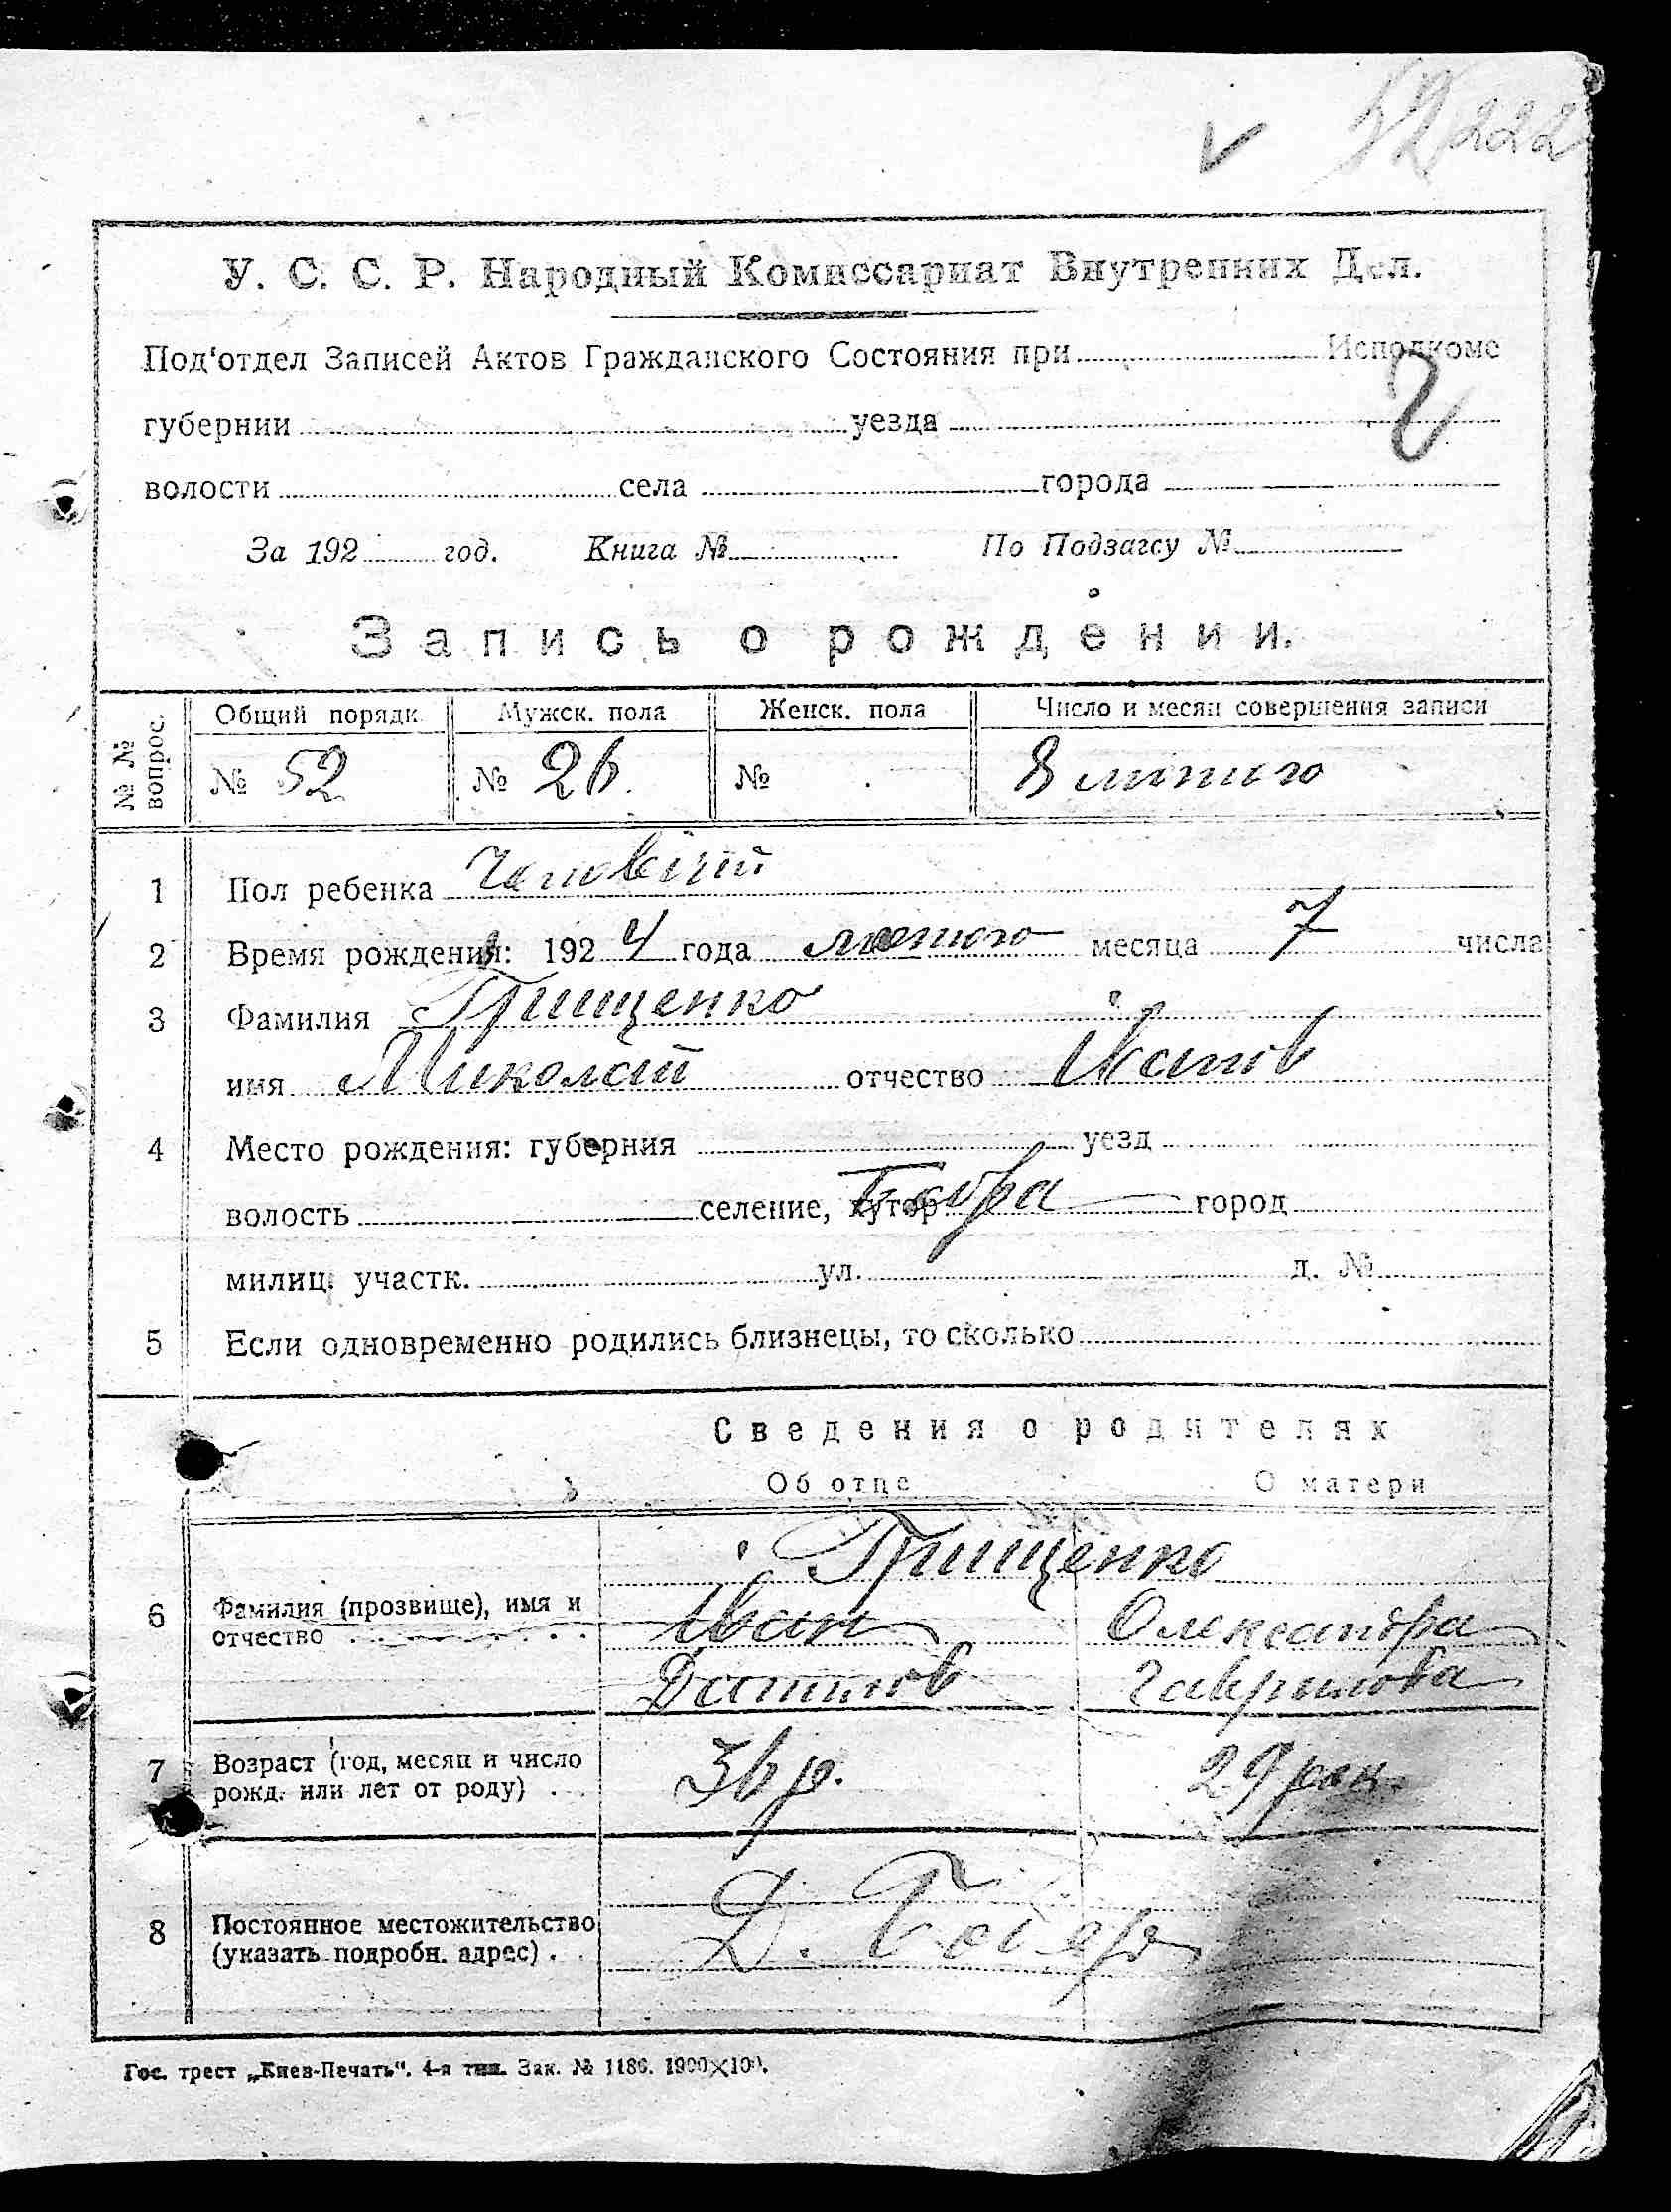 52 222
У. С. С. Р. Народный Комиссариат Внутренних Дел.
Под‘отдел Записей Актов Гражданского Состояния при Исполкоме
губернии уезда
волости села города
За 192 год. Книга № По Подзагсу №
Запись о рождении.
№ № вопрос. Общий порядк. Мужск. пола Женск. пола Число и месяц совершения записи
№ 52 № 26. № 8 лютого
1 Пол ребенка Чоловічий
2 Время рождения: 192 4 года лютого месяца 7 числа
3 Фамилия Грищенко
имя Миколай отчество Іванів
4 Место рождения: губерния уезд
волость селение, хутор город
милиц. участк. ул. д. №
5 Если одновременно родились близнецы, то сколько
Сведения о родителях
Об отце О матери
Грищенко
6 Фамилия (прозвище), имя и Іван Олександра
отчество . . . . . . . Данилов Гаврилова
7 Возраст (год, месяц и число 36 р. 29 рок.
рожд. или лет от роду) . .
8 Постоянное местожительство Д.
(указать подробн. адрес) . .
Гос. трест „Киев-Печать“. 4-я тип. Зак. № 1186. 1900×100.